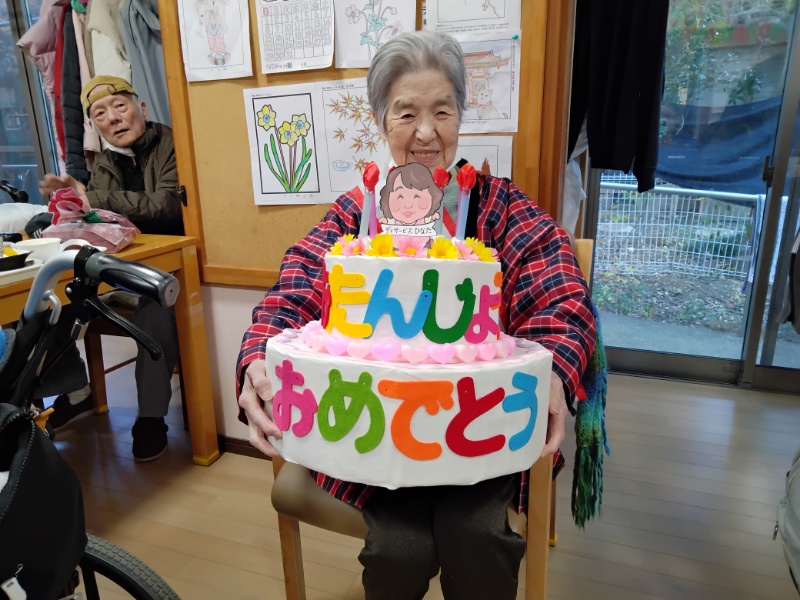 デイサービスひなた
たんじょ
おめでとう